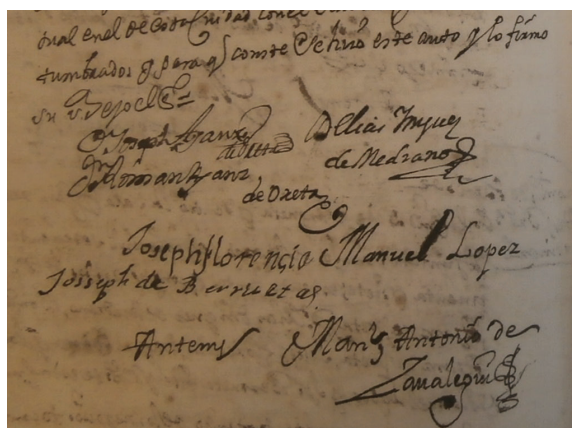 qual en el de esta Ciudad con el
tumbrados y para q conste se hizo este auto y lo firmo
su
Joseph Sanz
de Oreta
Elias Iniguez
de Medrano
Roman Sanz
de Oreta
Joseph florencio Manuel Lopez
Josseph de Berruetas
Antemy Man Antonio de
Zaualegui